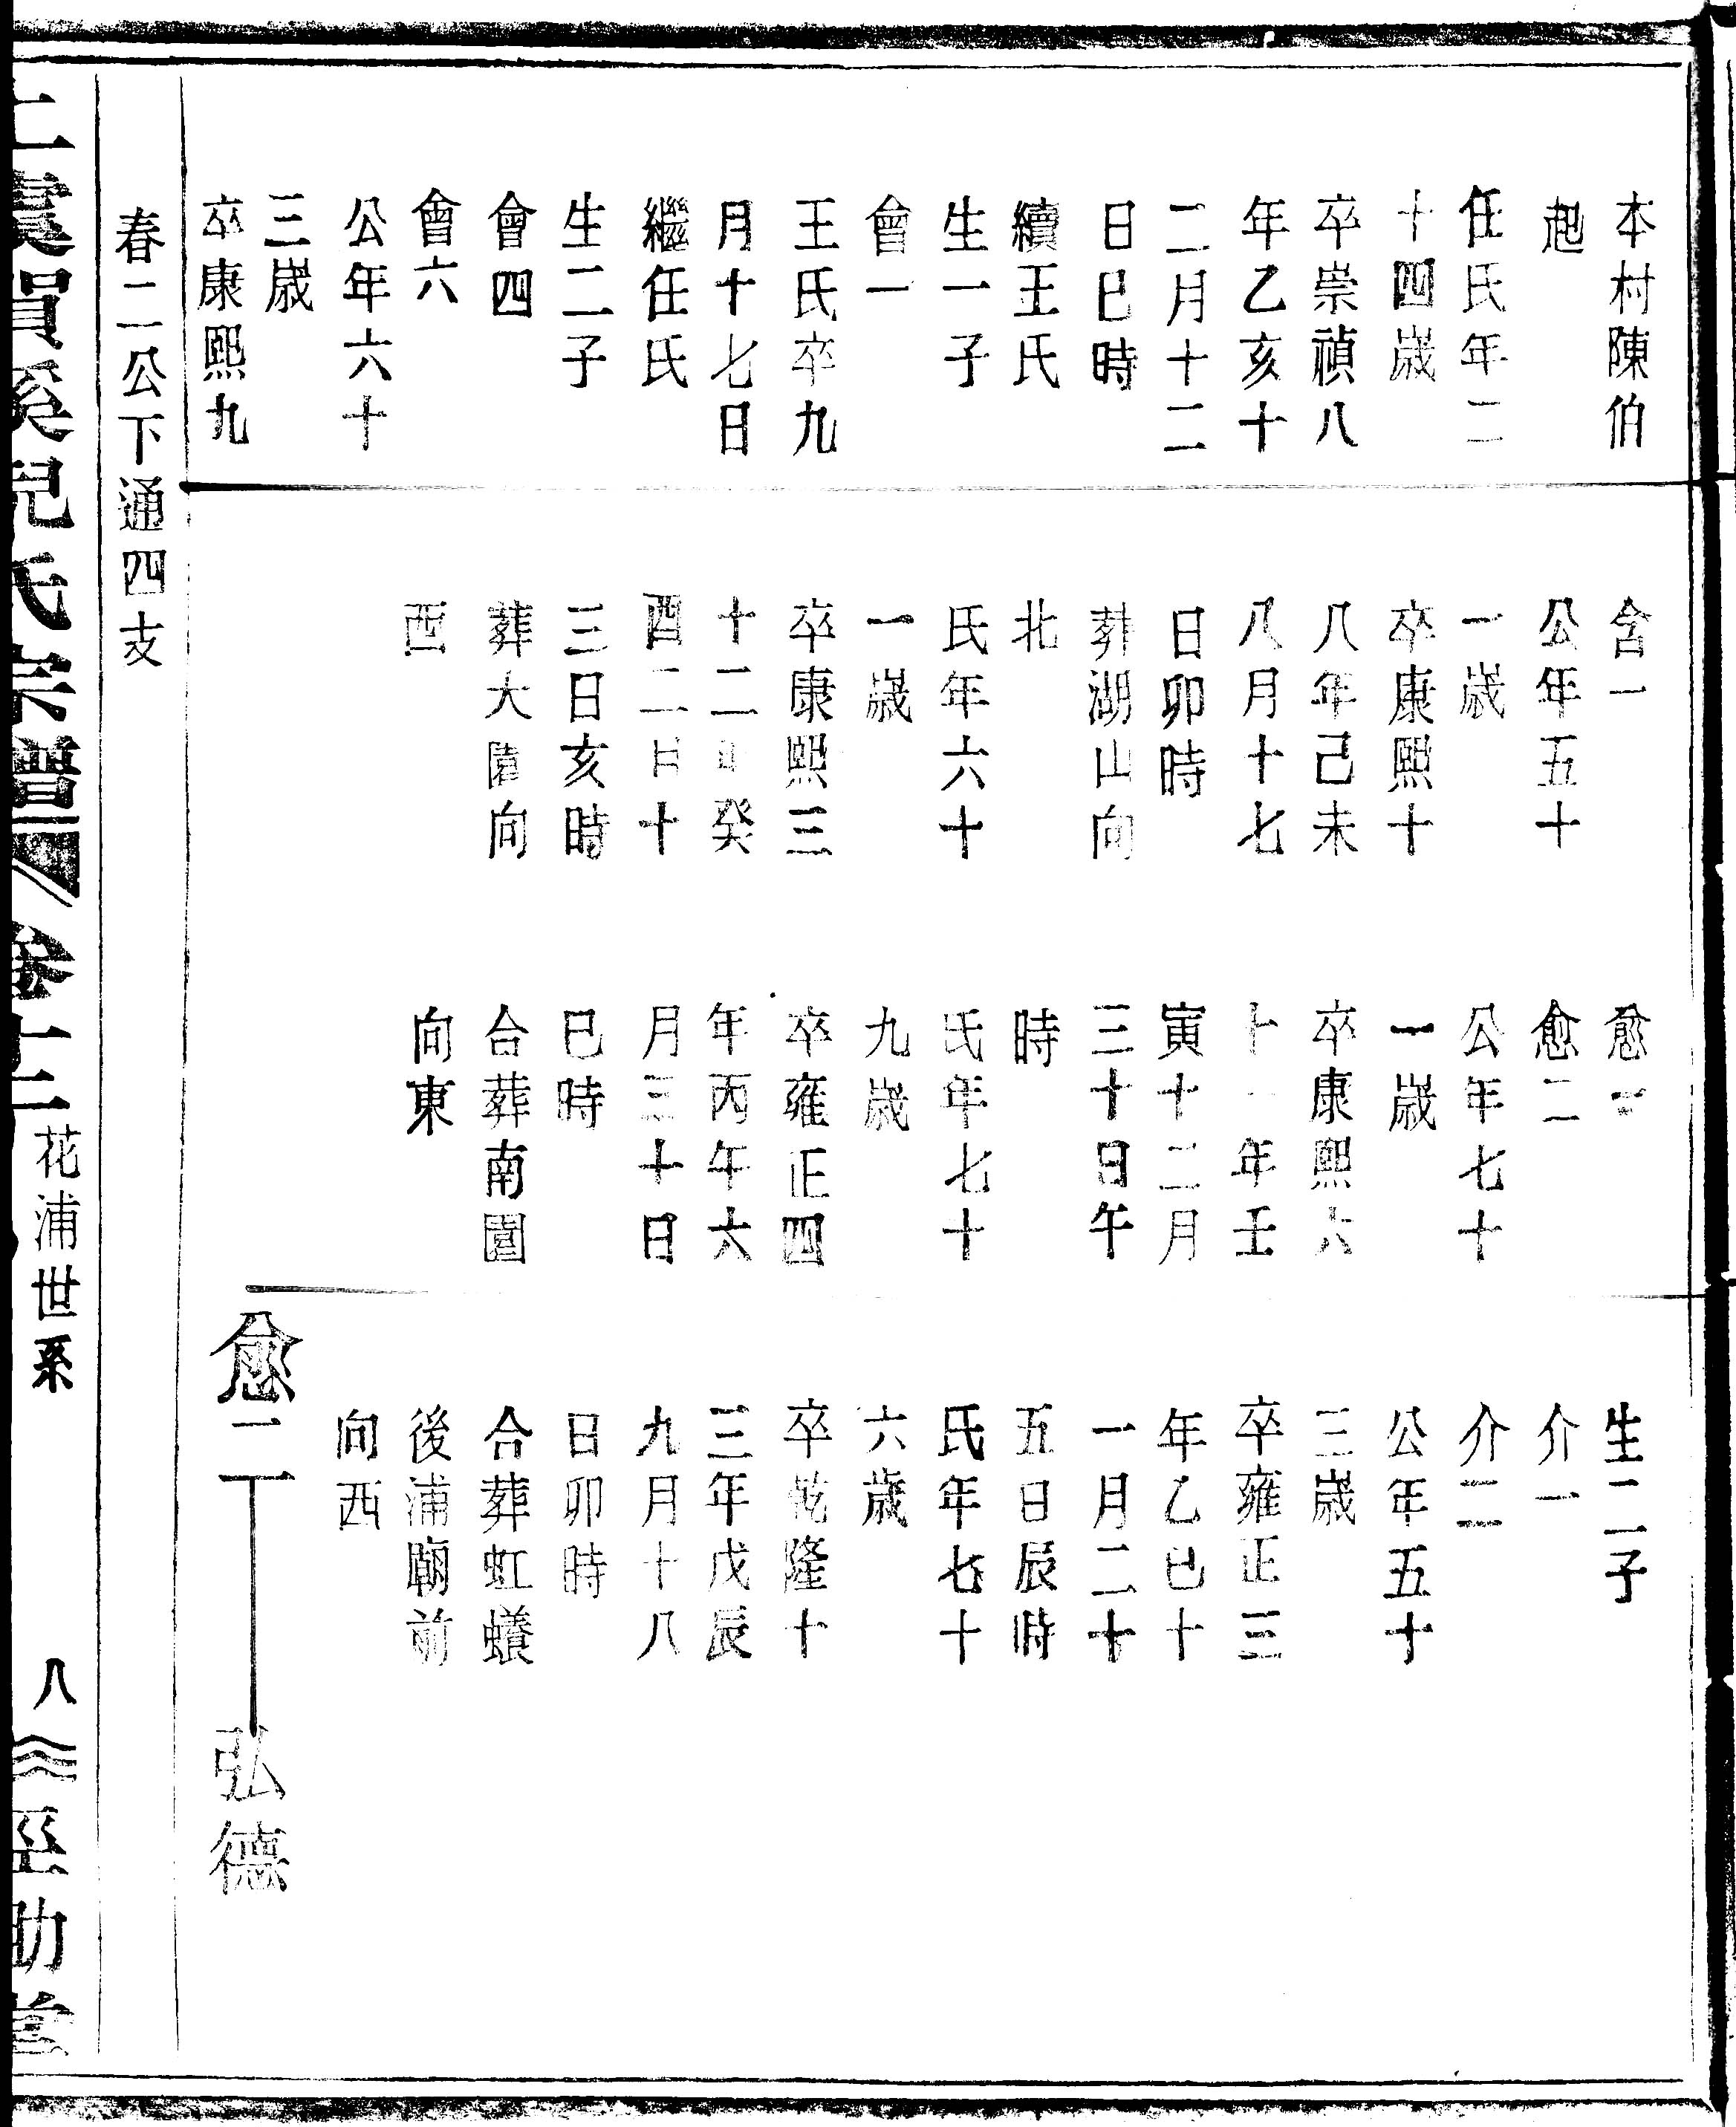 本村陳伯
起
任氏年二
十四歲
卒崇禎八
年乙亥十
二月十二
日巳時
續王氏
生一子
會一
王氏卒九
月十七日
繼任氏
生二子
會四
會六
公年六十
三歲
卒康熙九
含一
公年五十
一歲
卒康熙十
八年己未
八月十七
日卯時
葬湖山向
北
氏年六十
一歲
卒康熙三
十二年癸
酉二日十
三日亥時
葬大園向
西
愈
愈二
公年七十
一歲
卒康熙六
十一年壬
寅十二月
三十日午
時
氏年七十
九歲
卒雍正四
年丙午六
月三十日
巳時
合葬南園
向東
生二子
介一
介二
公年五十
三歲
卒雍正三
年乙巳十
一月二十
五日辰時
氏年七十
六歲
卒乾隆十
三年戊辰
九月十八
日卯時
合葬虹蟻
後浦廟前
向西
愈二
弘德
春二公下通四支
上虞賀溪倪氏宗譜
卷十二
花浦世系
八
經助堂